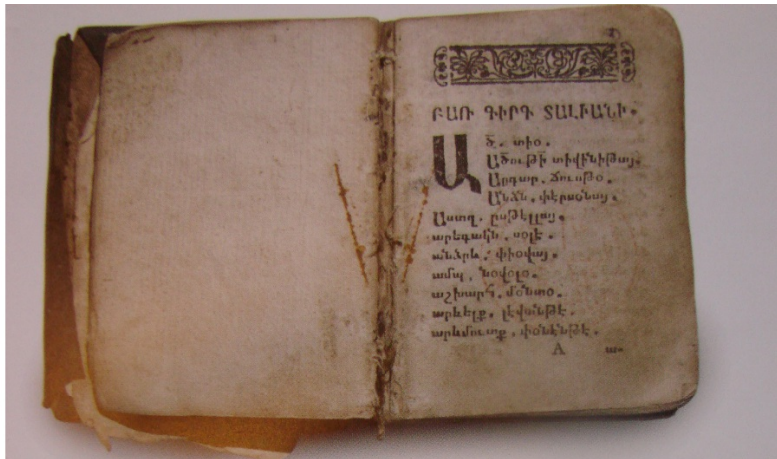 ԲԱՌ ԳԻՐԳ ՏԱԼԻԱՆԻ.
Ած. տիօ.
Ածութի տիվինիթայ.
Արդար. ճուսթօ.
Անձն. փէրսօնայ.
Աստղ. ըսթէլլայ.
արեգակն. սօլէ.
անձրև. փիօվայ.
ամպ. նօվօլօ.
աշխարհ. մօնտօ.
արևելք. լէվանթէ.
արևմուտք. փօնէնթէ.
A